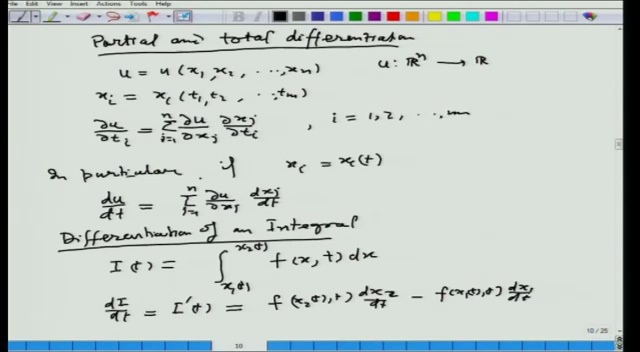 File Edit View Insert Actions Tools Help
Partial and total differentiation
u = u(x₁, x₂, ..., xₙ)    u: ℝⁿ → ℝ
xᵢ = xᵢ(t₁, t₂, ..., tₘ)
∂u/∂tᵢ = Σⁿⱼ₌₁ ∂u/∂xⱼ ∂xⱼ/∂tᵢ , i = 1, 2, ..., m
In particular, if xᵢ = xᵢ(t)
du/dt = Σⁿⱼ₌₁ ∂u/∂xⱼ dxⱼ/dt
Differentiation of an Integral
I(t) = ∫_{x₁(t)}^{x₂(t)} f(x, t) dx
dI/dt = I'(t) = f(x₂(t), t) dx₂/dt - f(x₁(t), t) dx₁/dt
10 / 25
10